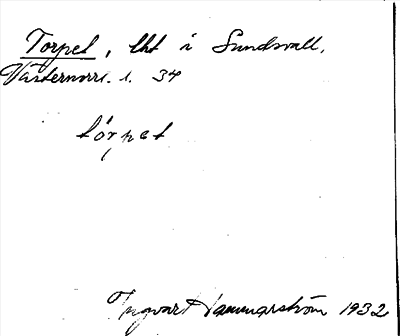 Torpet, lht i Sundsvall,
Västernorrl. l. 34
tórpet
Ingvar Hammarström 1932